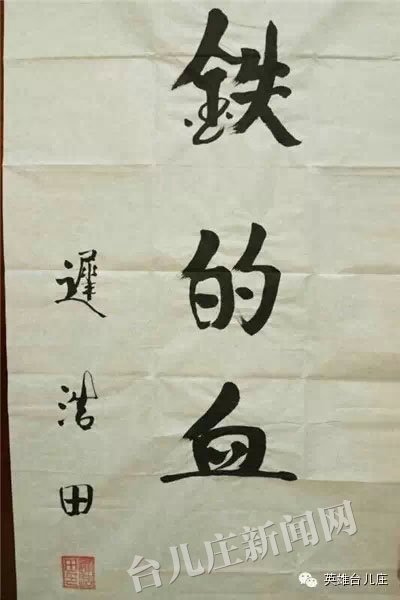 鉄的血
遲浩田
台儿庄新闻网
英雄台儿庄